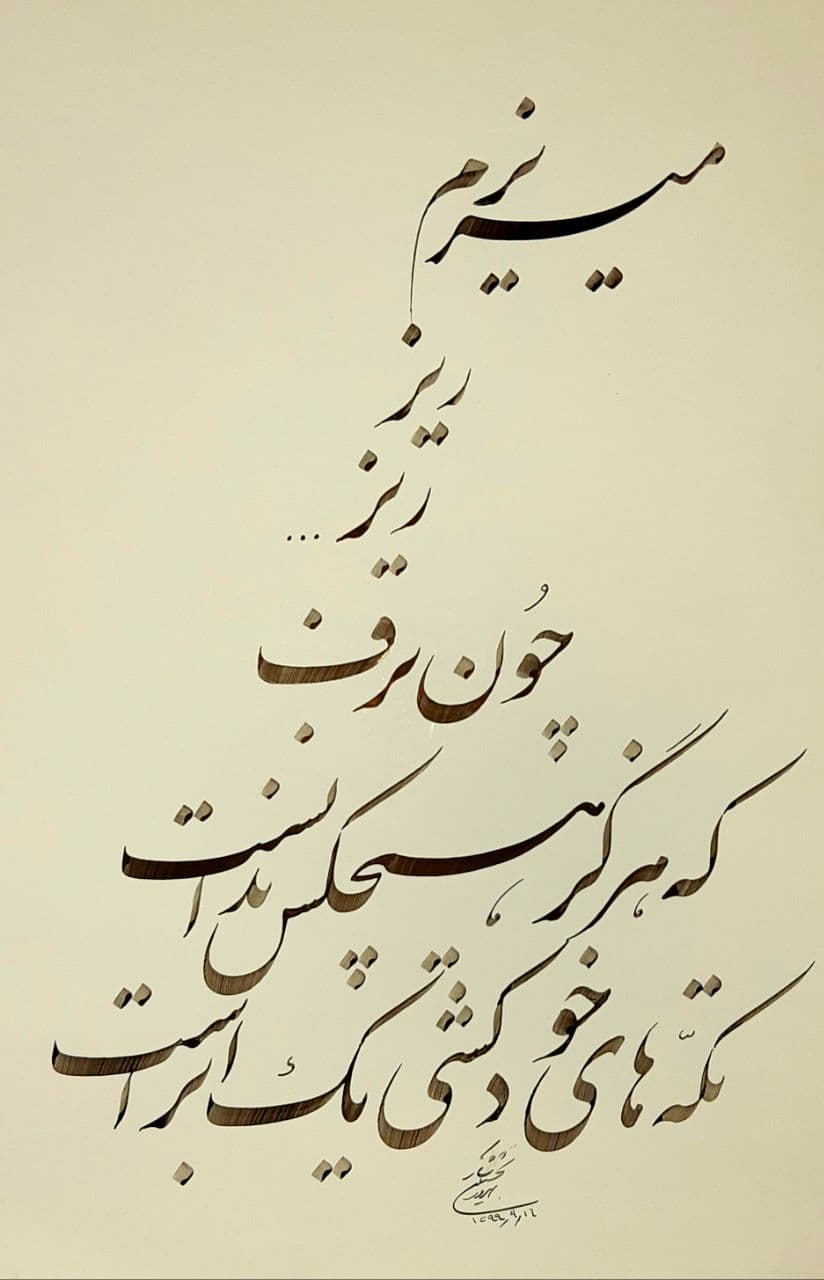 میریزم
ریز
ریز ...
چُون برف
که هرگز هیچکس ندانست
تکّه های خودکشی یک ابر است
۱۳۹۹٫۹٫۱۶